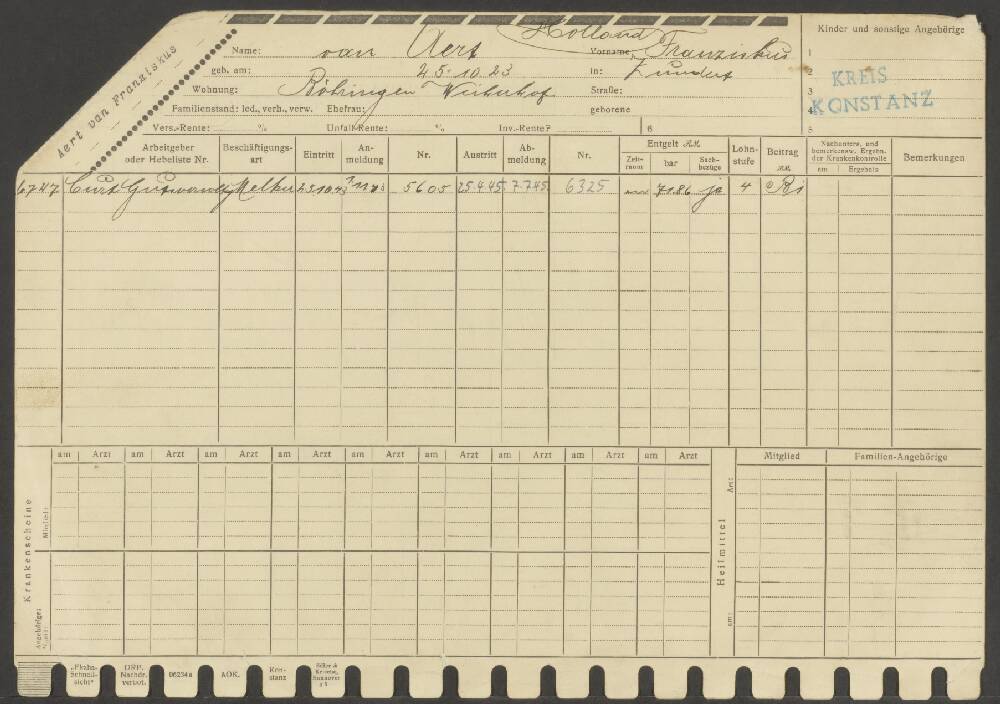 Aert van Franziskus
Holland
Name: van Aert Vorname: Franziskus
geb. am: 25.10.23 in: Zundert
Wohnung: Straße:
Familienstand: led., verh., verw. Ehefrau: geborene
Vers.-Rente: % Unfall-Rente: % Inv.-Rente? 6
Kinder und sonstige Angehörige
1
2
3
4
5
KREIS
KONSTANZ
Arbeitgeber oder Hebeliste Nr. Beschäftigungs-art Eintritt An-meldung Nr. Austritt Ab-meldung Nr. Entgelt RM. Zeit-raum bar Sach-bezüge Lohn-stufe Beitrag RM. Nachunters. und bemerkensw. Ergebn. der Krankenkontrolle am Ergebnis Bemerkungen
6747 Melker 25.10.43 5605 25.4.45 7.7.45 6325 71.86 ja 4
am Arzt am Arzt am Arzt am Arzt am Arzt am Arzt am Arzt am Arzt am Arzt
Krankenscheine
Mitglied:
Angehörige:
Heilmittel
Art:
am:
Mitglied Familien-Angehörige
DRP. Nachdr. verbot. 06234a AOK. Kon-stanz